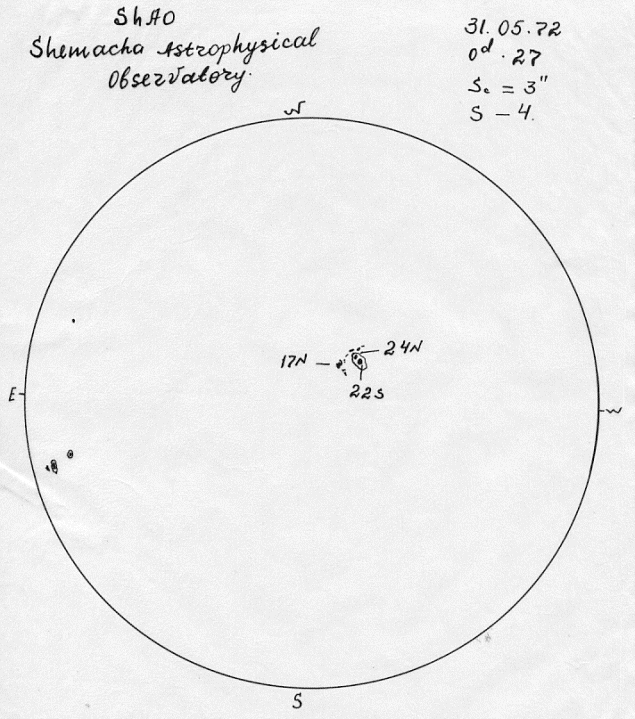 ShAO
Shemacha Astrophysical
Observatory.
31.05.72
0d.27
S. = 3"
S - 4.
N
17N
24N
22s
E
W
S